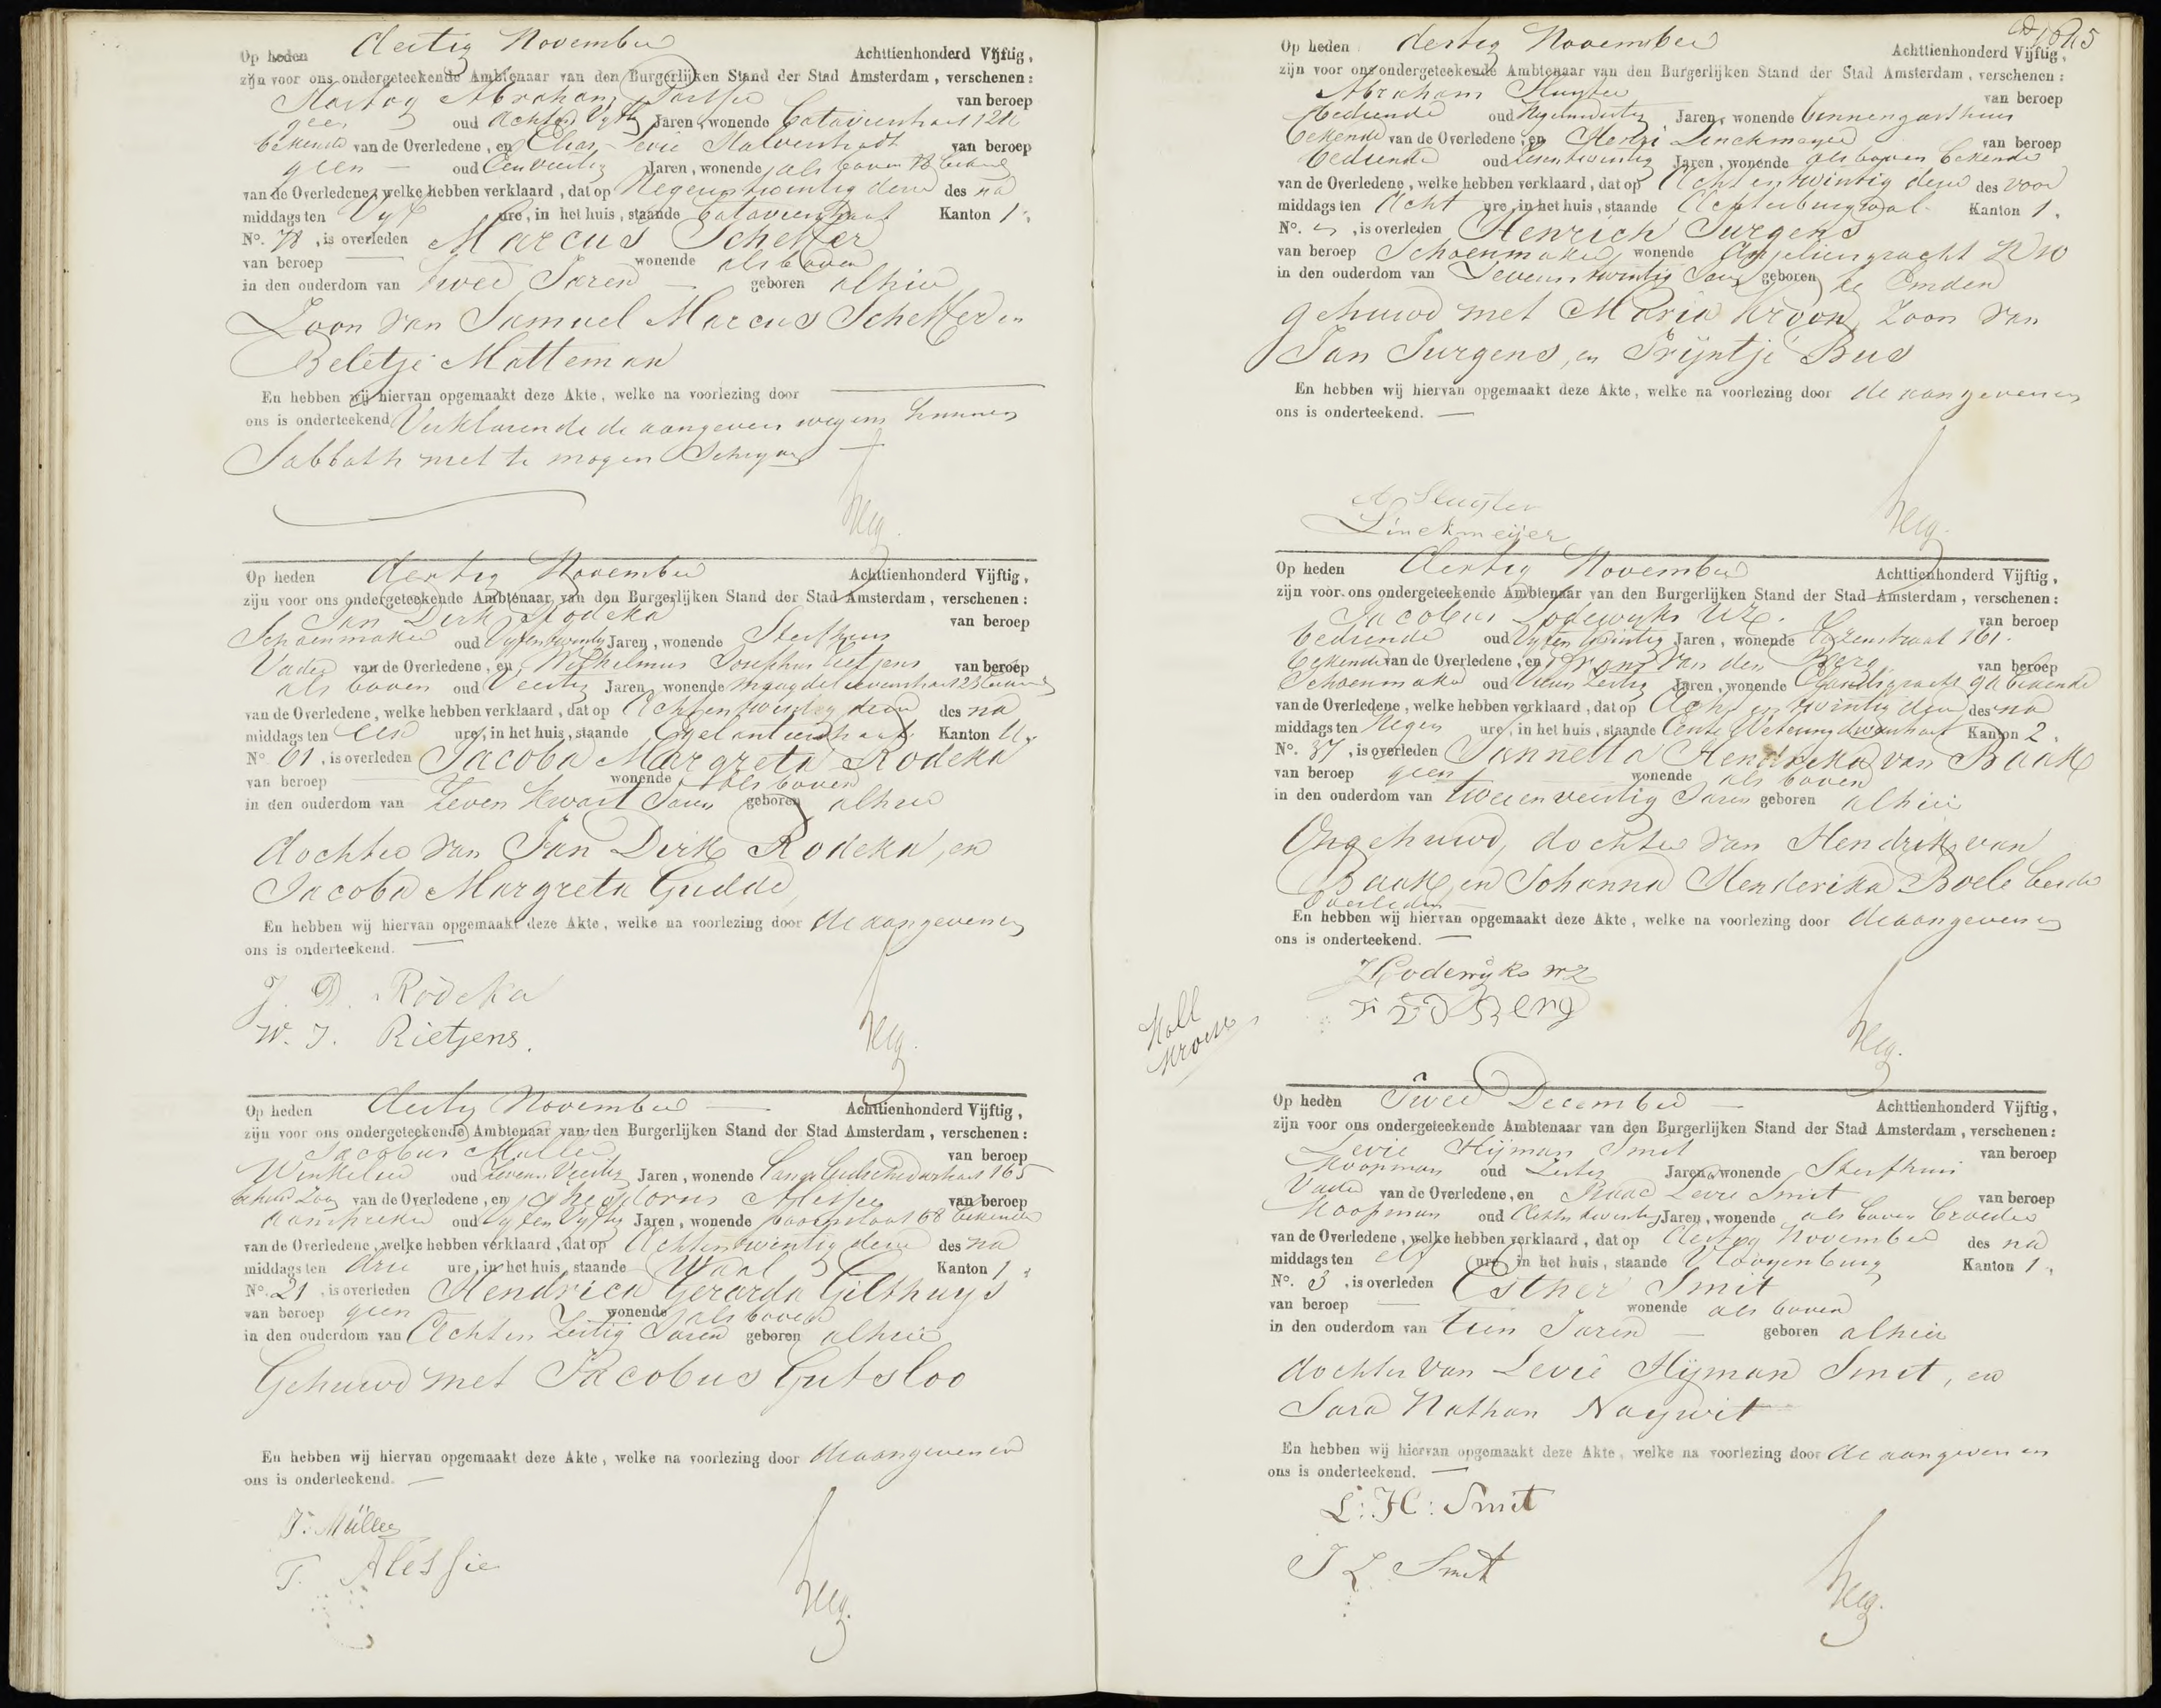 Op heden dertig November Achttienhonderd Vijftig,
zijn voor ons ondergeteekende Ambtenaar van den Burgerlijken Stand der Stad Amsterdam, verschenen:
Hartog Abraham van beroep
geen oud Acht en Vyftig Jaren, wonende Batavierstraat
bekende van de Overledene, en Levie Halverstadt van beroep
geen — oud Eenveertig Jaren, wonende als boven
van de Overledene, welke hebben verklaard, dat op Negenentwintig dezer des na
middags ten Vyf ure, in het huis, staande Batavierstraat Kanton 1,
No. 78, is overleden Marcus Scheffer
van beroep — wonende als boven
in den ouderdom van twee Jaren — geboren alhier
Zoon van Samuel Marcus Scheffer en
Beletje Matteman
En hebben wij hiervan opgemaakt deze Akte, welke na voorlezing door —
ons is onderteekend Verklarende de aangevers wegens hunnen
Sabbath niet te mogen Schryven —
Op heden dertig November Achttienhonderd Vijftig,
zijn voor ons ondergeteekende Ambtenaar van den Burgerlijken Stand der Stad Amsterdam, verschenen:
Jan Dirk Rodeka van beroep
Schoenmaker oud Vyfentwintig Jaren, wonende Sterfhuis
Vader van de Overledene, en Wilhelmus Josephus Rietjens van beroep
als boven oud Veertig Jaren, wonende
van de Overledene, welke hebben verklaard, dat op Achtentwintig dezer des na
middags ten een ure, in het huis, staande Egelantierstraat Kanton 4,
No. 61, is overleden Jacoba Margreta Rodeka
van beroep — wonende als boven
in den ouderdom van Zeven Kwart Jaar geboren alhier
dochter van Jan Dirk Rodeka, en
Jacoba Margreta Gudde,
En hebben wij hiervan opgemaakt deze Akte, welke na voorlezing door de aangevers en
ons is onderteekend. —
J. D. Rodeka
W. J. Rietjens.
Op heden dertig November — Achttienhonderd Vijftig,
zijn voor ons ondergeteekende Ambtenaar van den Burgerlijken Stand der Stad Amsterdam, verschenen:
Jacobus Muller van beroep
Winkelier oud Zevenen Veertig Jaren, wonende Lange Leidschedwarsstraat 165
van de Overledene, en Theodorus Alessie van beroep
Aanspreker oud Vyfen Vyftig Jaren, wonende 68 bekende
van de Overledene, welke hebben verklaard, dat op Achtentwintig dezer des na
middags ten drie ure, in het huis, staande Waal Kanton 1,
No. 21, is overleden Hendrica Gerarda Gilthuys
van beroep geen wonende als boven
in den ouderdom van Achten Zestig Jaren geboren alhier
Gehuwd met Jacobus Gutsloo
En hebben wij hiervan opgemaakt deze Akte, welke na voorlezing door de aangevers en
ons is onderteekend. —
J. Müller
T. Alessie
Op heden dertig November Achttienhonderd Vijftig,
zijn voor ons ondergeteekende Ambtenaar van den Burgerlijken Stand der Stad Amsterdam, verschenen:
Abraham Sluyter van beroep
bediende oud Negenendertig Jaren, wonende binnengasthuis
bekende van de Overledene, en Henri Linckmeyer van beroep
bediende oud Zesentwintig Jaren, wonende als boven bekende
van de Overledene, welke hebben verklaard, dat op Acht en twintig dezer des voor
middags ten Acht ure, in het huis, staande Achterburgwal Kanton 1,
No. , is overleden Henrich Jurgens
van beroep Schoenmaker wonende Anjeliersgracht
in den ouderdom van Zevenentwintig Jaar geboren te Emden
gehuwd met Maria Kroon, Zoon van
Jan Jurgens, en Trijntje Bus
En hebben wij hiervan opgemaakt deze Akte, welke na voorlezing door de aangevers en
ons is onderteekend. —
A Sluyter
Linckmeijer
Op heden dertig November Achttienhonderd Vijftig,
zijn voor ons ondergeteekende Ambtenaar van den Burgerlijken Stand der Stad Amsterdam, verschenen:
Jacobus Lodewyks WZ. van beroep
bediende oud Vyfen twintig Jaren, wonende 161.
bekende van de Overledene, en Frans van den Berg van beroep
Schoenmaker oud Zestig Jaren, wonende Elandsgracht bekende
van de Overledene, welke hebben verklaard, dat op Acht en twintig dezer des na
middags ten Negen ure, in het huis, staande Eerste Weteringdwarsstraat Kanton 2,
No. 37, is overleden Jannetta Hendrika van Baak
van beroep geen wonende als boven
in den ouderdom van tweeenveertig Jaren geboren alhier
Ongehuwd, dochter van Hendrik van
Baak, en Johanna Henderika Boele beide
overleden
En hebben wij hiervan opgemaakt deze Akte, welke na voorlezing door de aangevers en
ons is onderteekend. —
J Lodewyks WZ
F V D Berg
Op heden Twee December — Achttienhonderd Vijftig,
zijn voor ons ondergeteekende Ambtenaar van den Burgerlijken Stand der Stad Amsterdam, verschenen:
Levie Hijman Smit van beroep
Koopman oud Zestig Jaren, wonende Sterfhuis
Vader van de Overledene, en Isaac Levie Smit van beroep
Koopman oud Achtentwintig Jaren, wonende als boven broeder
van de Overledene, welke hebben verklaard, dat op dertig November des na
middags ten elf ure, in het huis, staande Vlooyenburg Kanton 1,
No. 3, is overleden Esther Smit
van beroep — wonende als boven
in den ouderdom van tien Jaren — geboren alhier
dochter van Levie Hijman Smit, en
Sara Nathan Naywit
En hebben wij hiervan opgemaakt deze Akte, welke na voorlezing door de aangevers en
ons is onderteekend. —
L: H: Smit
J L Smit